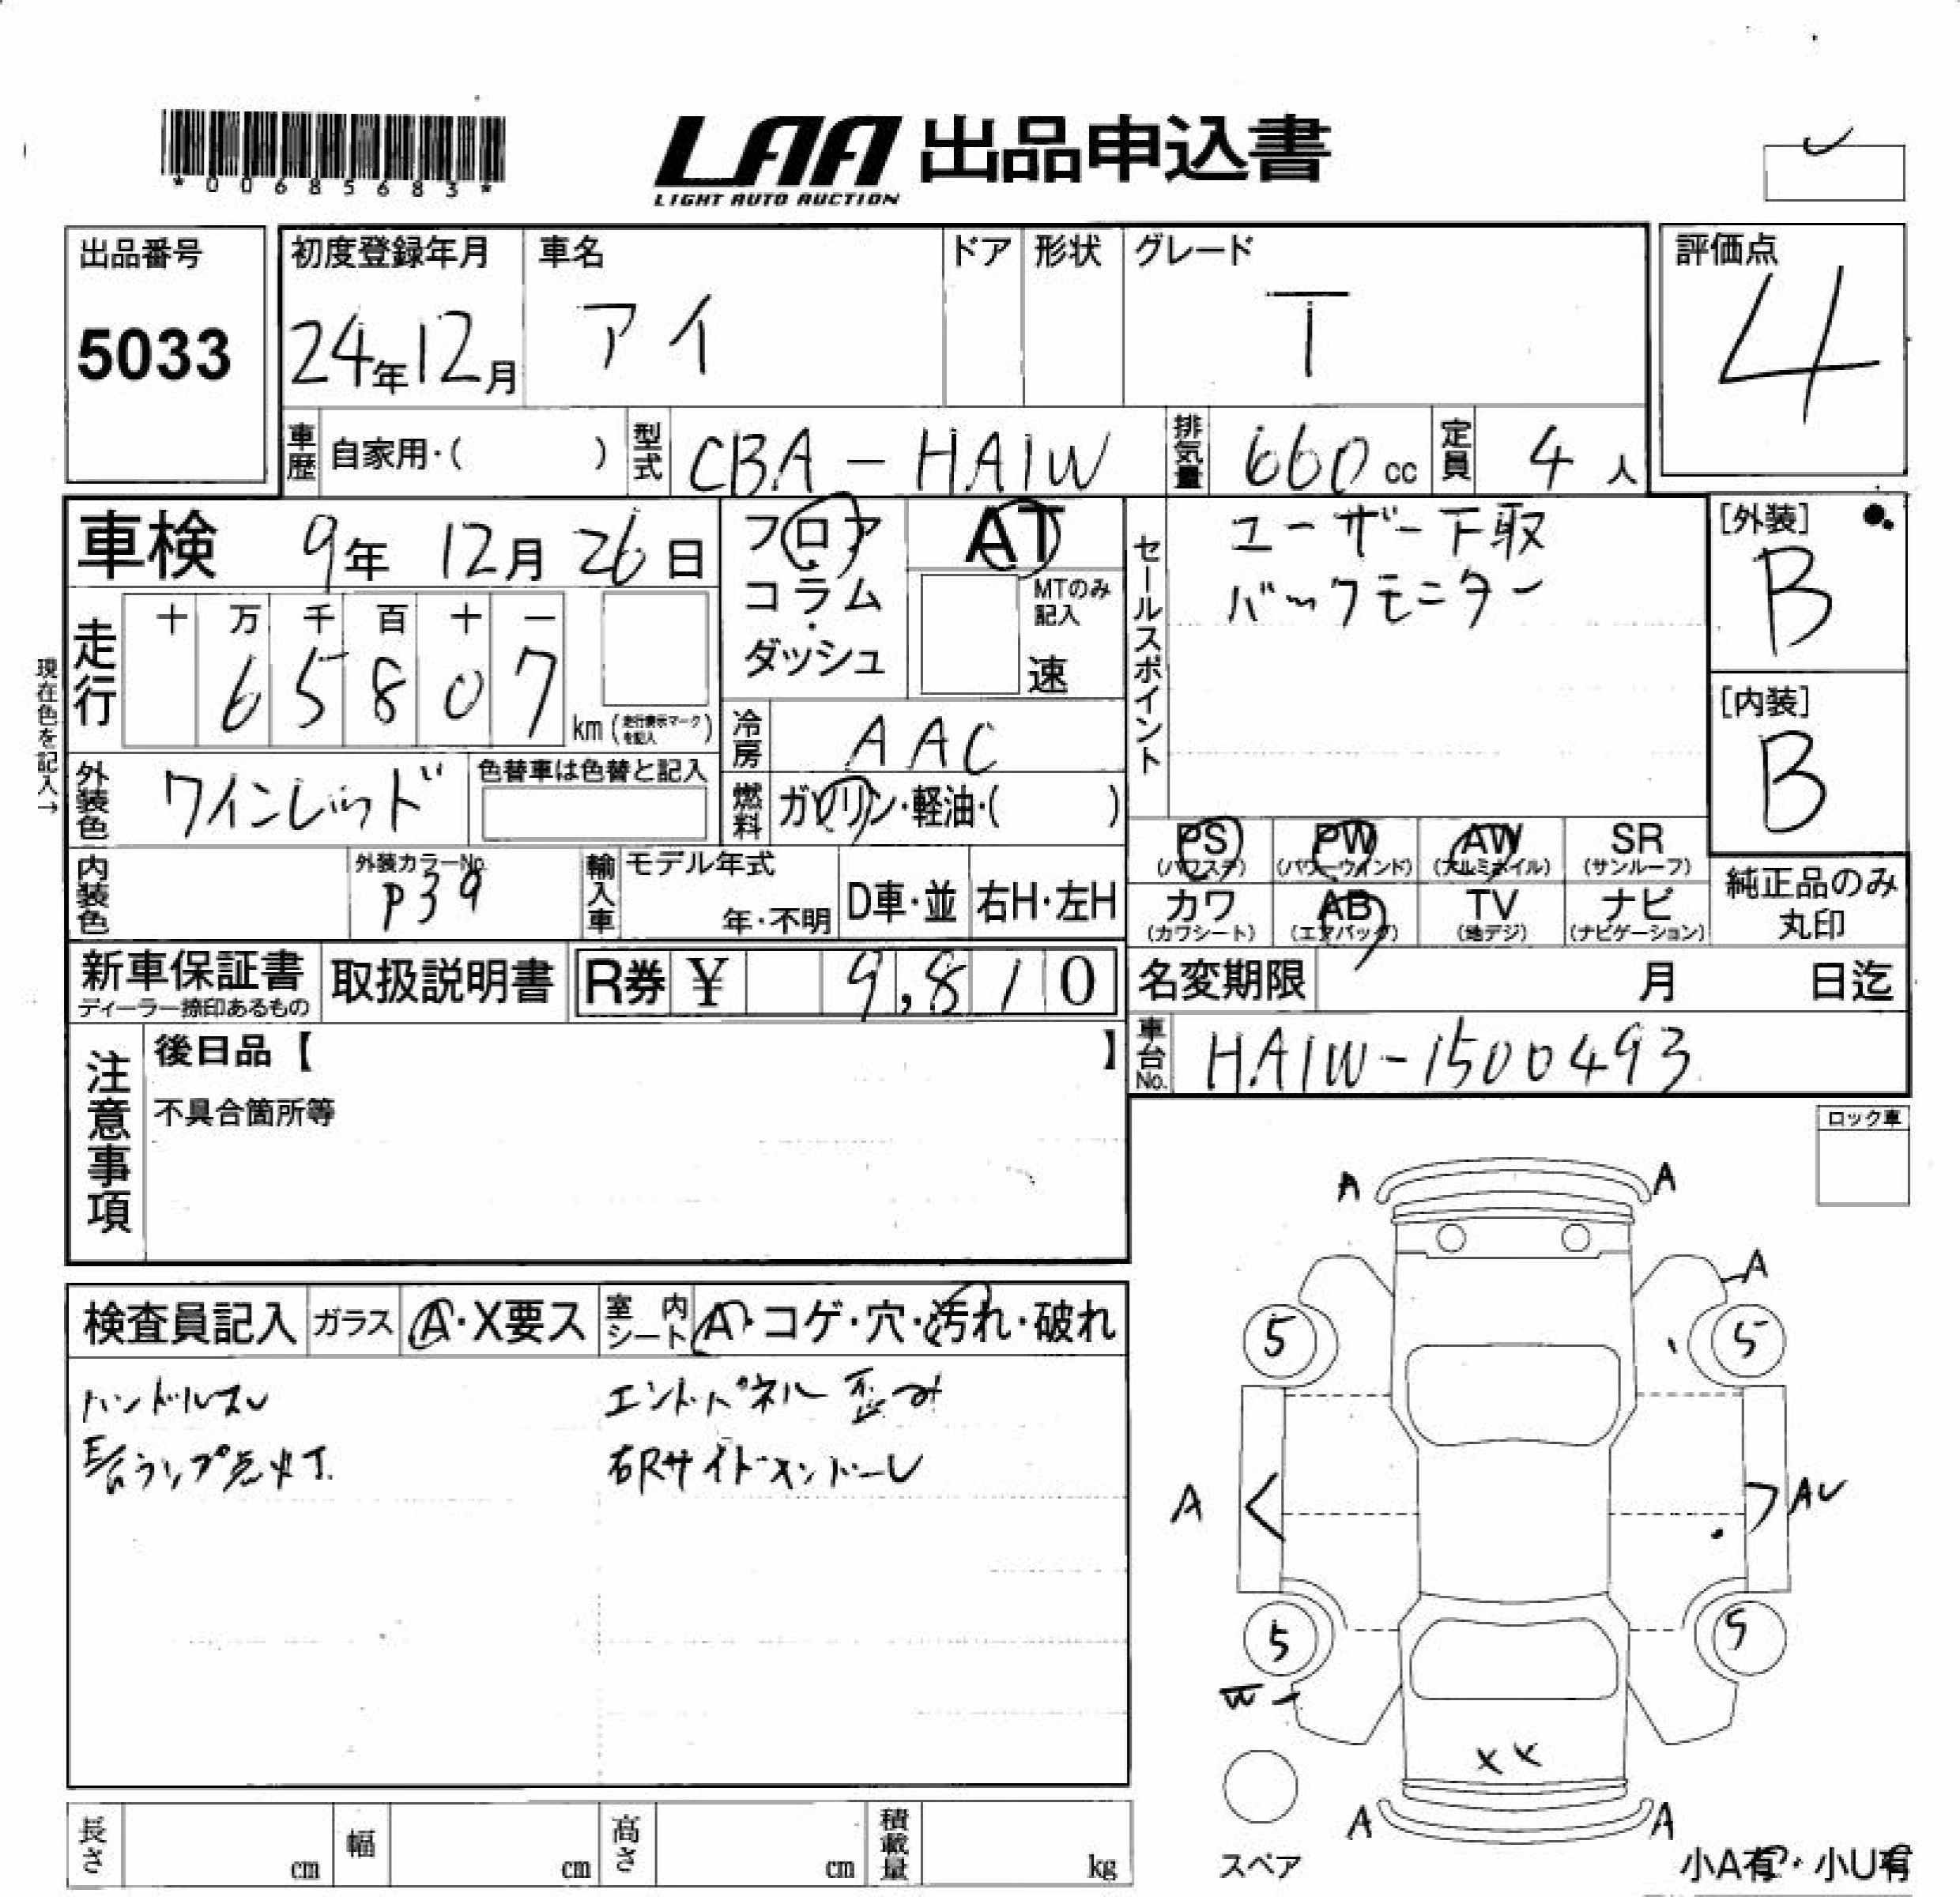 *00685683*
LAA 出品申込書
LIGHT AUTO AUCTION
出品番号
5033
初度登録年月
24年12月
車名
アイ
ドア
形状
グレード
T
評価点
4
車歴
自家用・( )
型式
CBA-HA1W
排気量
660cc
定員
4人
車検 9年 12月 26日
フロア
コラム
・
ダッシュ
AT
MTのみ
記入
速
セールスポイント
ユーザー下取
バックモニター
[外装]
B
[内装]
B
現在色を記入→
走行
十 万 千 百 十 一
6 5 8 0 7
km (走行表示マークを記入)
冷房
AAC
外装色
ワインレッド
色替車は色替と記入
燃料
ガソリン・軽油・( )
PS
(パワステ)
PW
(パワーウインド)
AW
(アルミホイル)
SR
(サンルーフ)
内装色
外装カラーNo.
P39
輸入車
モデル年式
年・不明
D車・並
右H・左H
カワ
(カワシート)
AB
(エアバッグ)
TV
(地デジ)
ナビ
(ナビゲーション)
純正品のみ
丸印
新車保証書
ディーラー捺印あるもの
取扱説明書
R券 ¥ 9,810
名変期限
月 日迄
注意事項
後日品【 】
不具合箇所等
車台No.
HA1W-1500493
ロック車
検査員記入
ガラス
A・X要ス
室内シート
A・コゲ・穴・汚れ・破れ
ハンドルスレ
エンドパネル 歪み
ランプ点灯
右Rサイドメンバー
A A
A
5 5
A
AU
5 5
W
XX
A A
スペア
小A有・小U有
長さ
cm
幅
cm
高さ
cm
積載量
kg